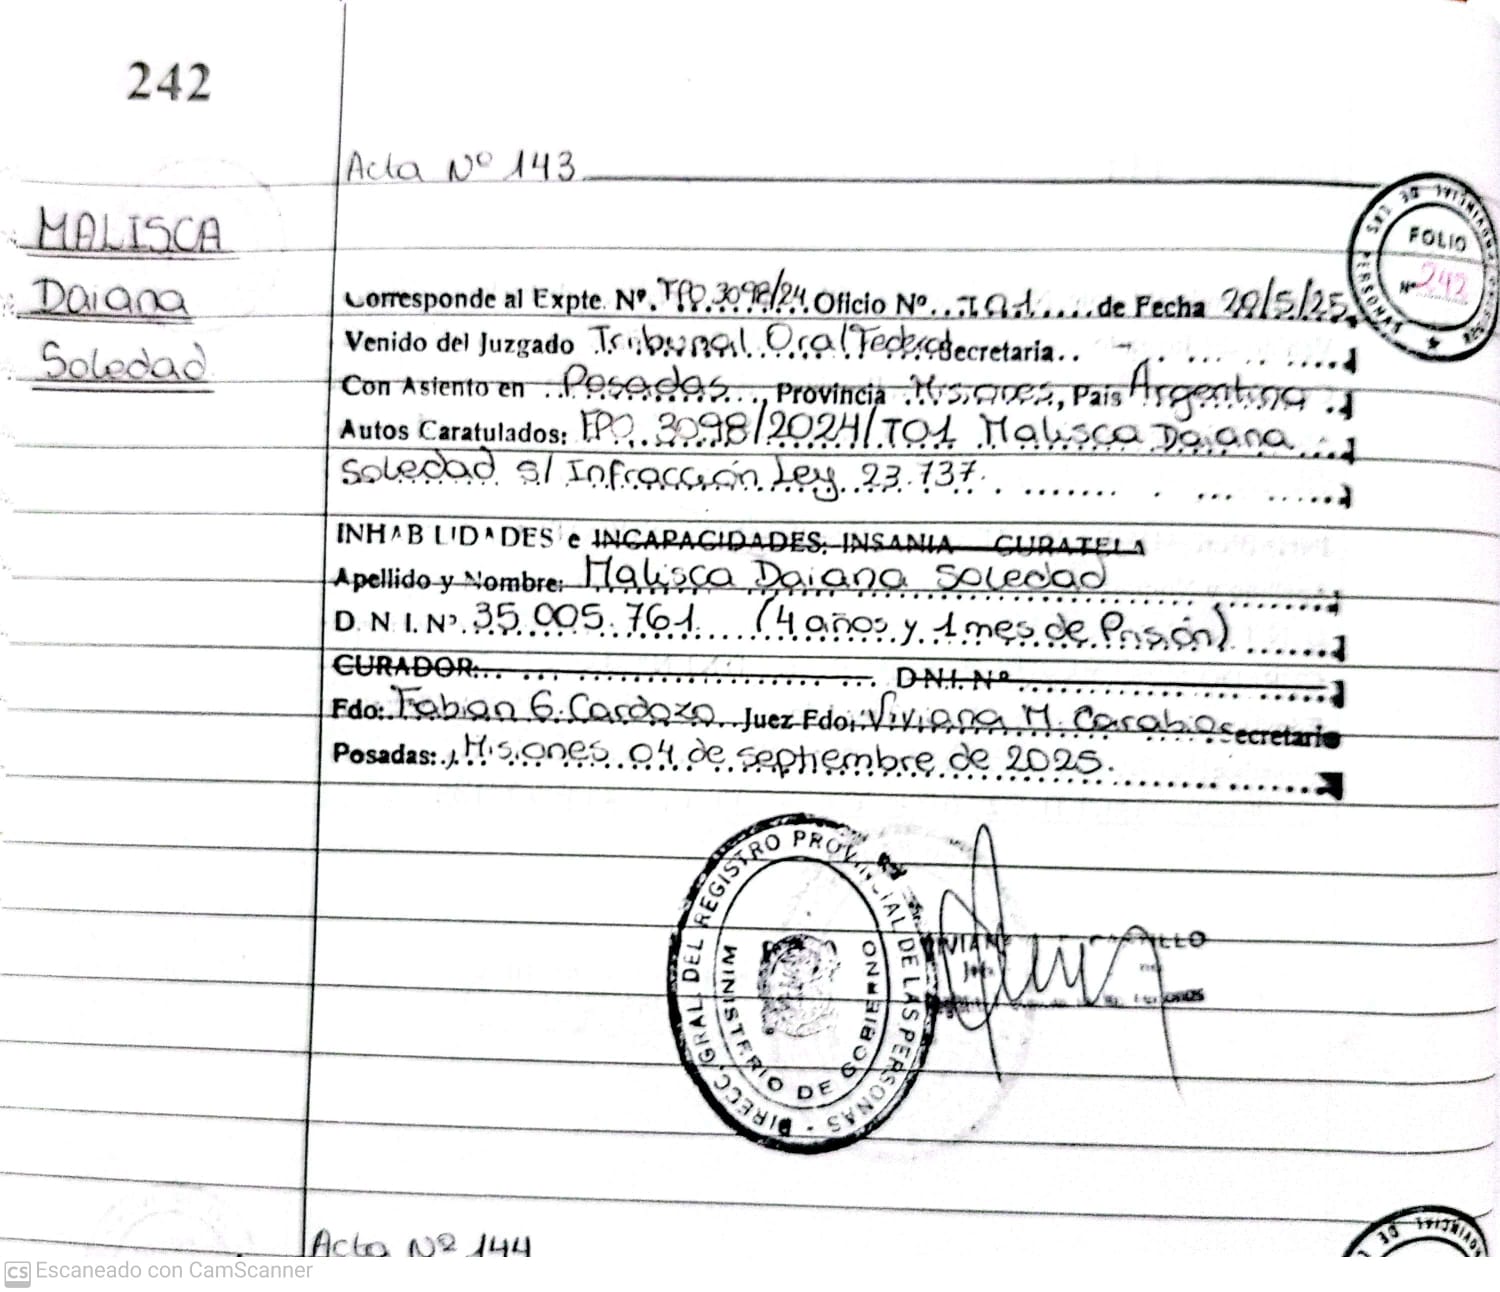 242
Acta Nº 143
MALISCA
Daiana
Soledad
DE LAS PERSONAS
FOLIO
Nº 242
Corresponde al Expte. Nº. FPO 3098/24 Oficio Nº. de Fecha 20/5/25
Venido del Juzgado Tribunal Oral Federal Secretaria.. -
Con Asiento en Posadas, Provincia Misiones, Pais Argentina
Autos Caratulados: FPO 3098/2024/TO1 Malisca Daiana
Soledad s/ Infracción Ley 23.737.
INHABILIDADES e INCAPACIDADES: INSANIA - CURATELA
Apellido y Nombre: Malisca Daiana Soledad
D.N.I.Nº. 35.005.761 (4 años y 1 mes de Prisión)
CURADOR: D.N.I. Nº
Fdo: Fabian G. Cardozo Juez Fdo: Viviana M. Secretario
Posadas: , Misiones 04 de septiembre de 2025.
DIRECC. GRAL. DEL REGISTRO PROVINCIAL DE LAS PERSONAS
MINISTERIO DE GOBIERNO
Acta Nº 144
CS Escaneado con CamScanner